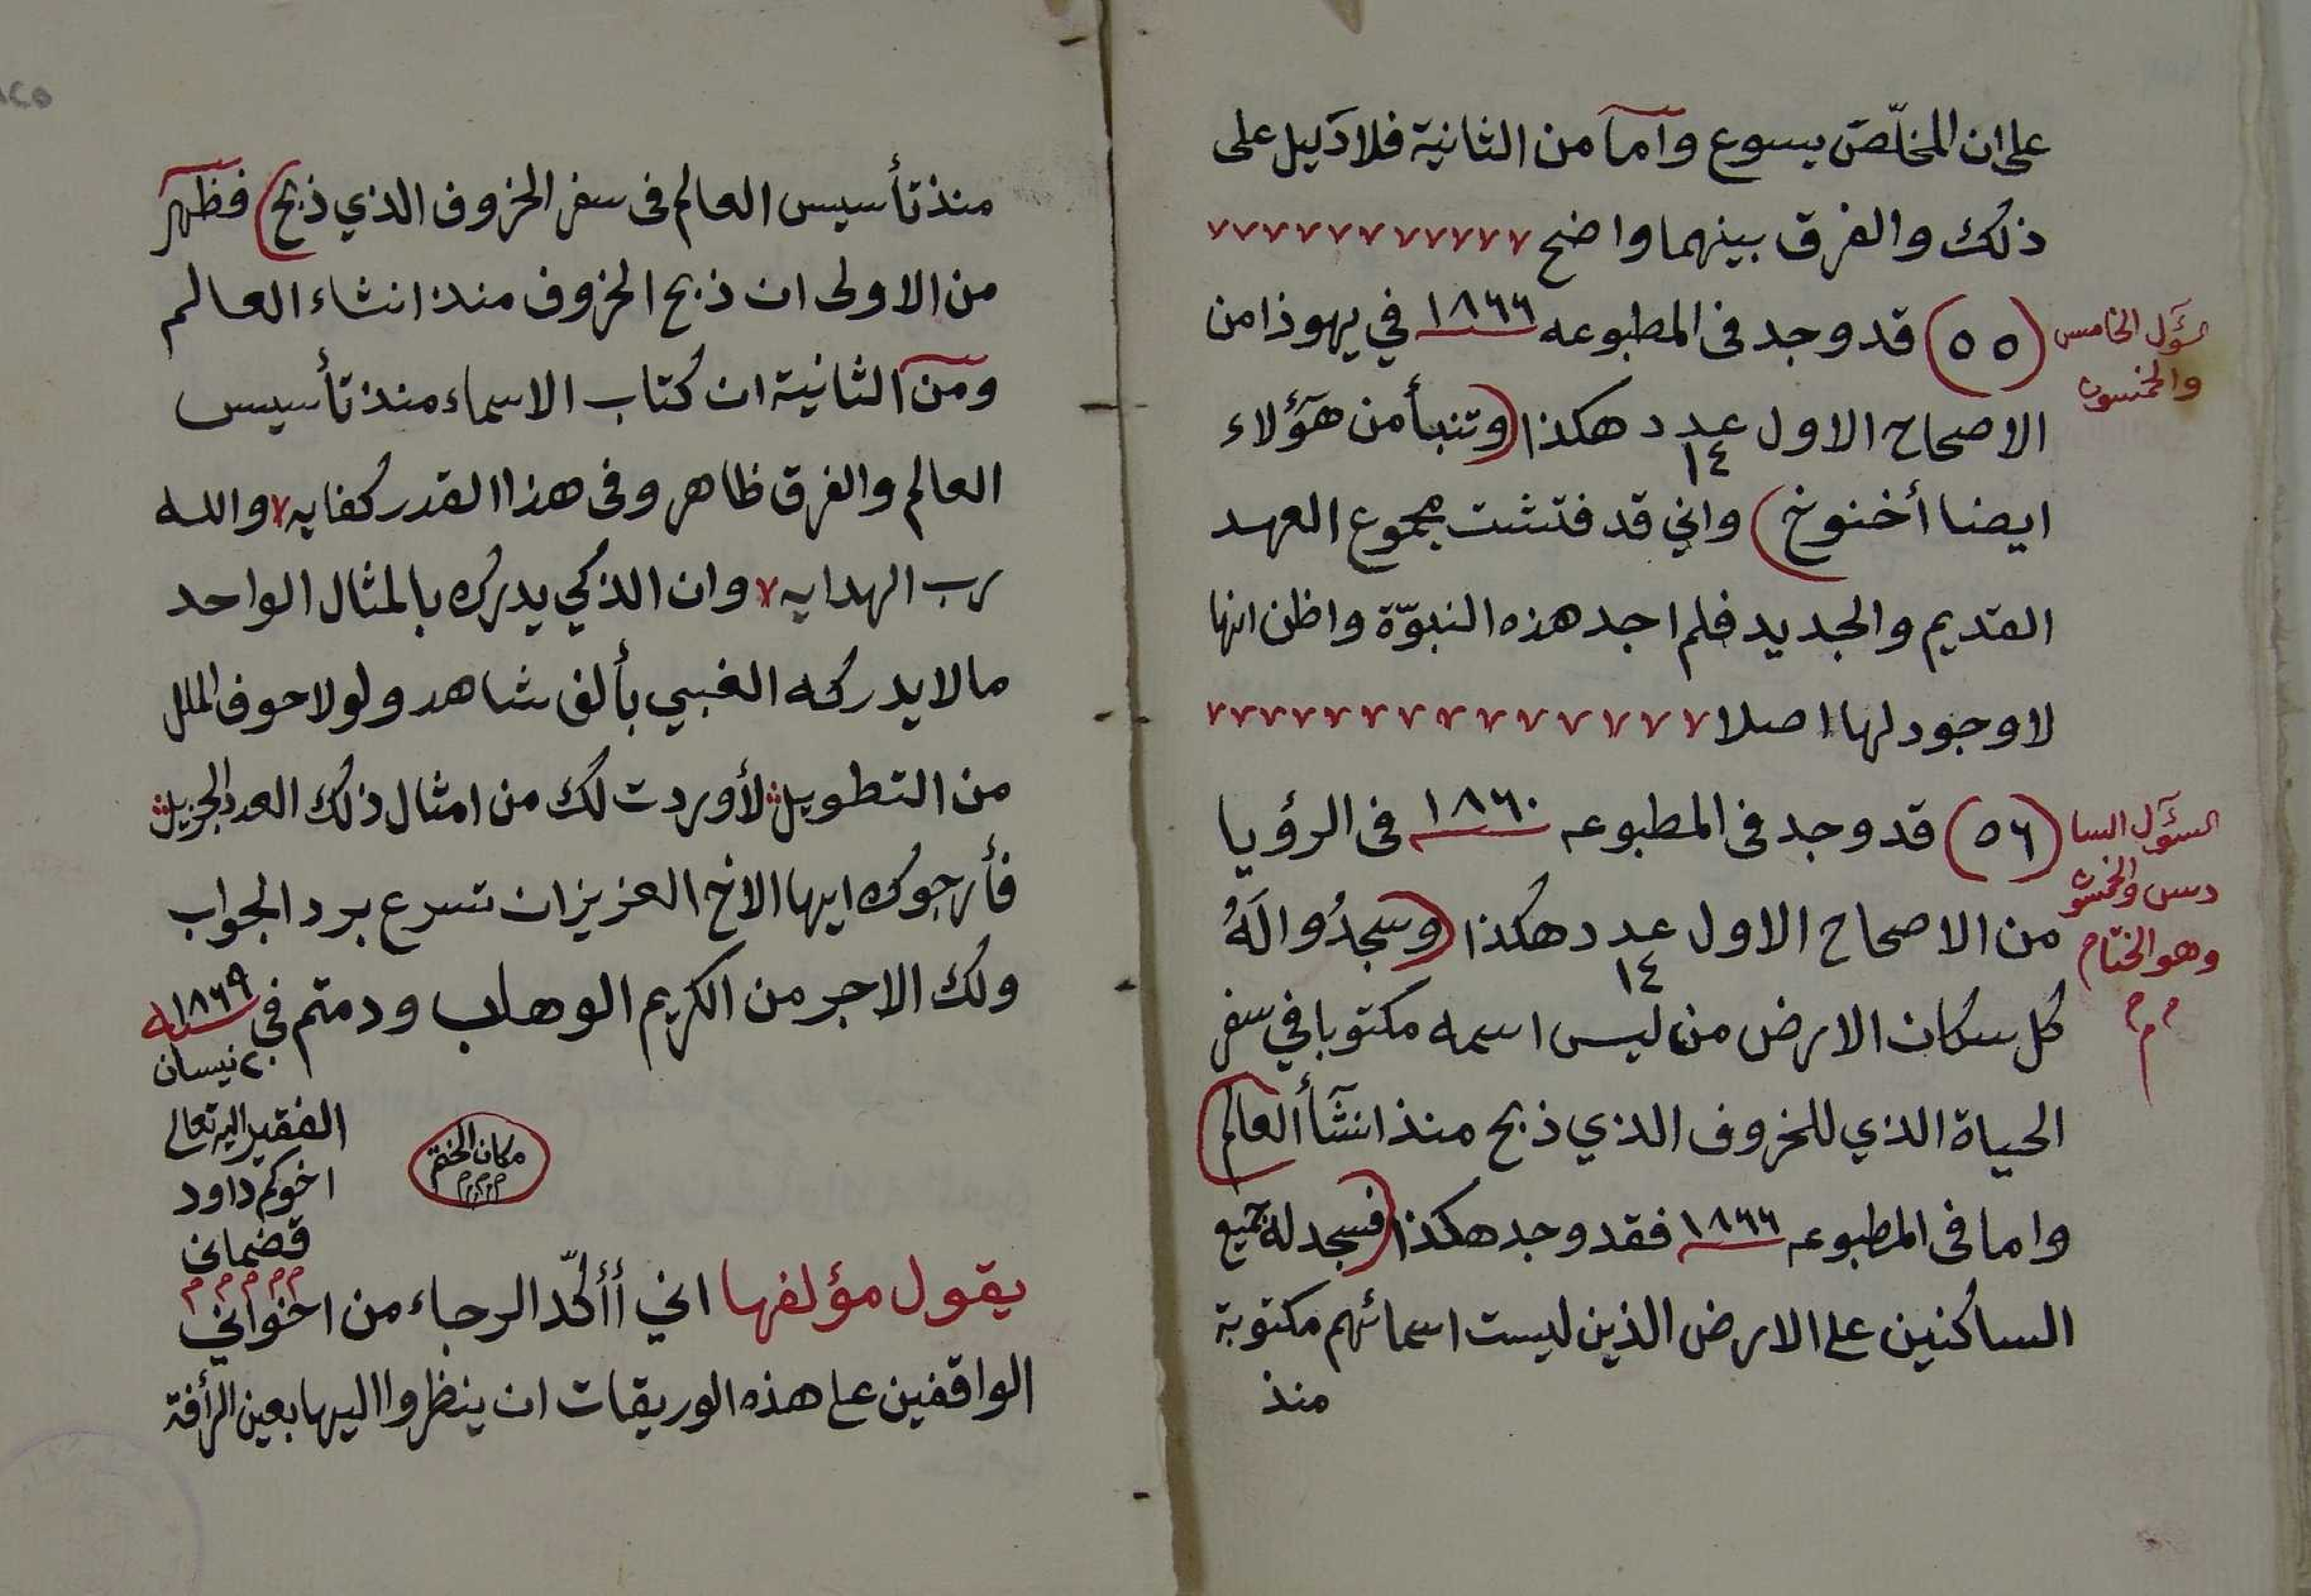 على ان المخلّص يسوع واما من الثانية فلا دليل على
ذلك والفرق بينهما واضح
سؤل الخامس
والخمسون
(٥٥) قد وجد فى المطبوعه ١٨٦٦ في يهوذا من
الاصحاح الاول عدد ١٤ هكذا (وتنبأ من هؤلاء
ايضا أخنوخ) واني قد فتشت مجموع العهد
القديم والجديد فلم اجد هذه النبوّة واظن انها
لا وجود لها اصلا
السؤل السا
دس والخمسون
وهو الختام
(٥٦) قد وجد فى المطبوعه ١٨٦٠ فى الرؤيا
من الاصحاح الاول عدد ١٤ هكذا (وسجدُوا لَهُ
كل سكان الارض من ليس اسمه مكتوبا في سفر
الحياة الذي للخروف الذي ذبح منذ انشأ العالم)
واما فى المطبوعه ١٨٦٦ فقد وجد هكذا (فسجد له جميع
الساكنين على الارض الذين ليست اسمائهم مكتوبة
منذ
منذ تأسيس العالم فى سفر الخروف الذي ذبح) فظهر
من الاولى ان ذبح الخروف منذ انشاء العالم
ومن الثانية ان كتاب الاسماء منذ تأسيس
العالم والفرق ظاهر وفى هذا القدر كفايه والله
رب الهدايه وان الذكي يدرك بالمثال الواحد
مالا يدركه الغبي بألف شاهد ولولا حوف الملل
من التطويل لأوردت لك من امثال ذلك العدد الجزيل
فأرجوك ايها الاخ العزيز ان تسرع برد الجواب
ولك الاجر من الكريم الوهاب ودمتم فى سنه ١٨٦٩
٢٠ نيسان
الفقير اليه تعالى
اخوكم داود
قضمانى
مكان الختم
يقول مؤلفها اني أأكّد الرجاء من اخواني
الواقفين على هذه الوريقات ان ينظروا اليها بعين الرأفة